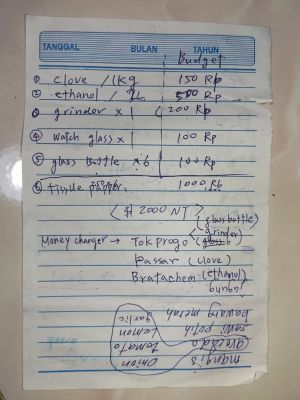 TANGGAL BULAN TAHUN
Budget
① clove / 1kg 150 Rp
② ethanol / 1L 500 Rp
③ grinder × 1 200 Rp
④ watch glass × 1 100 Rp
⑤ glass bottle × 6 100 Rp
⑥ tissue paper 1000 Rp
< $ 2000 NT >
(glass bottle)
(grinder)
Money changer → Tok Progo
Passar (clove)
Bratachem (ethanol)
Agung
mangis Onion
avocado Tomato
sawi putih Lemon
bawang merah garlic